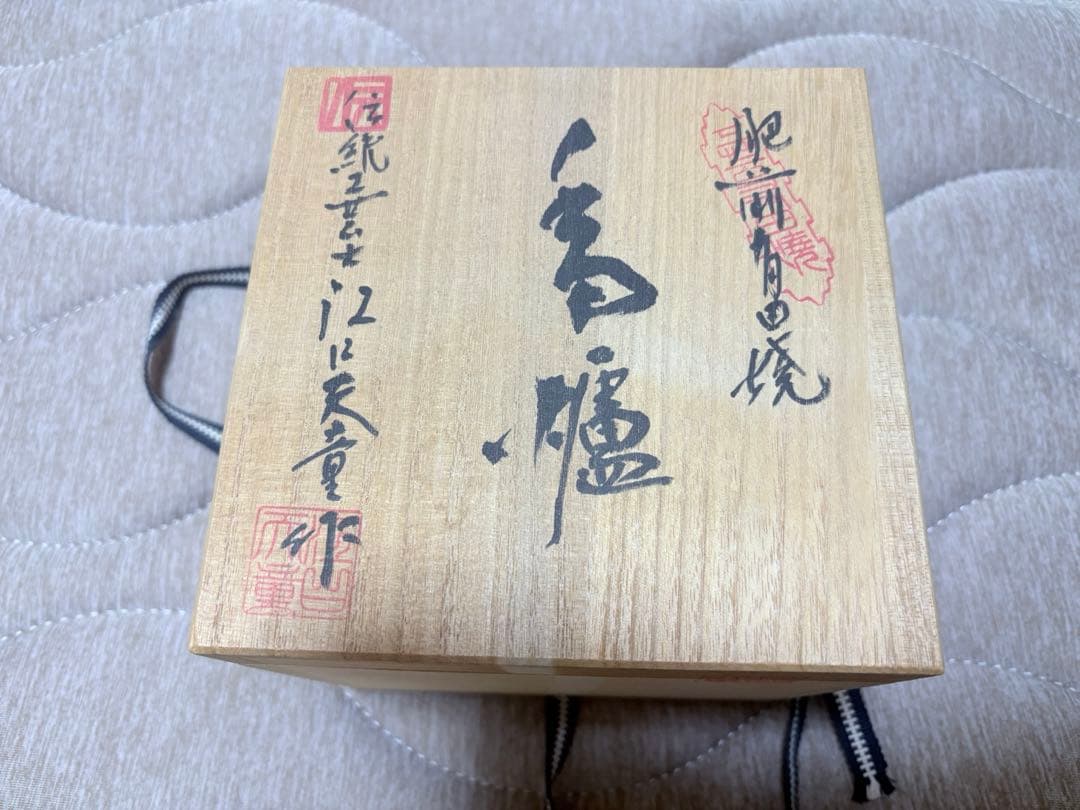 肥前有田焼
香爐
伝統工芸士 江口天童 作